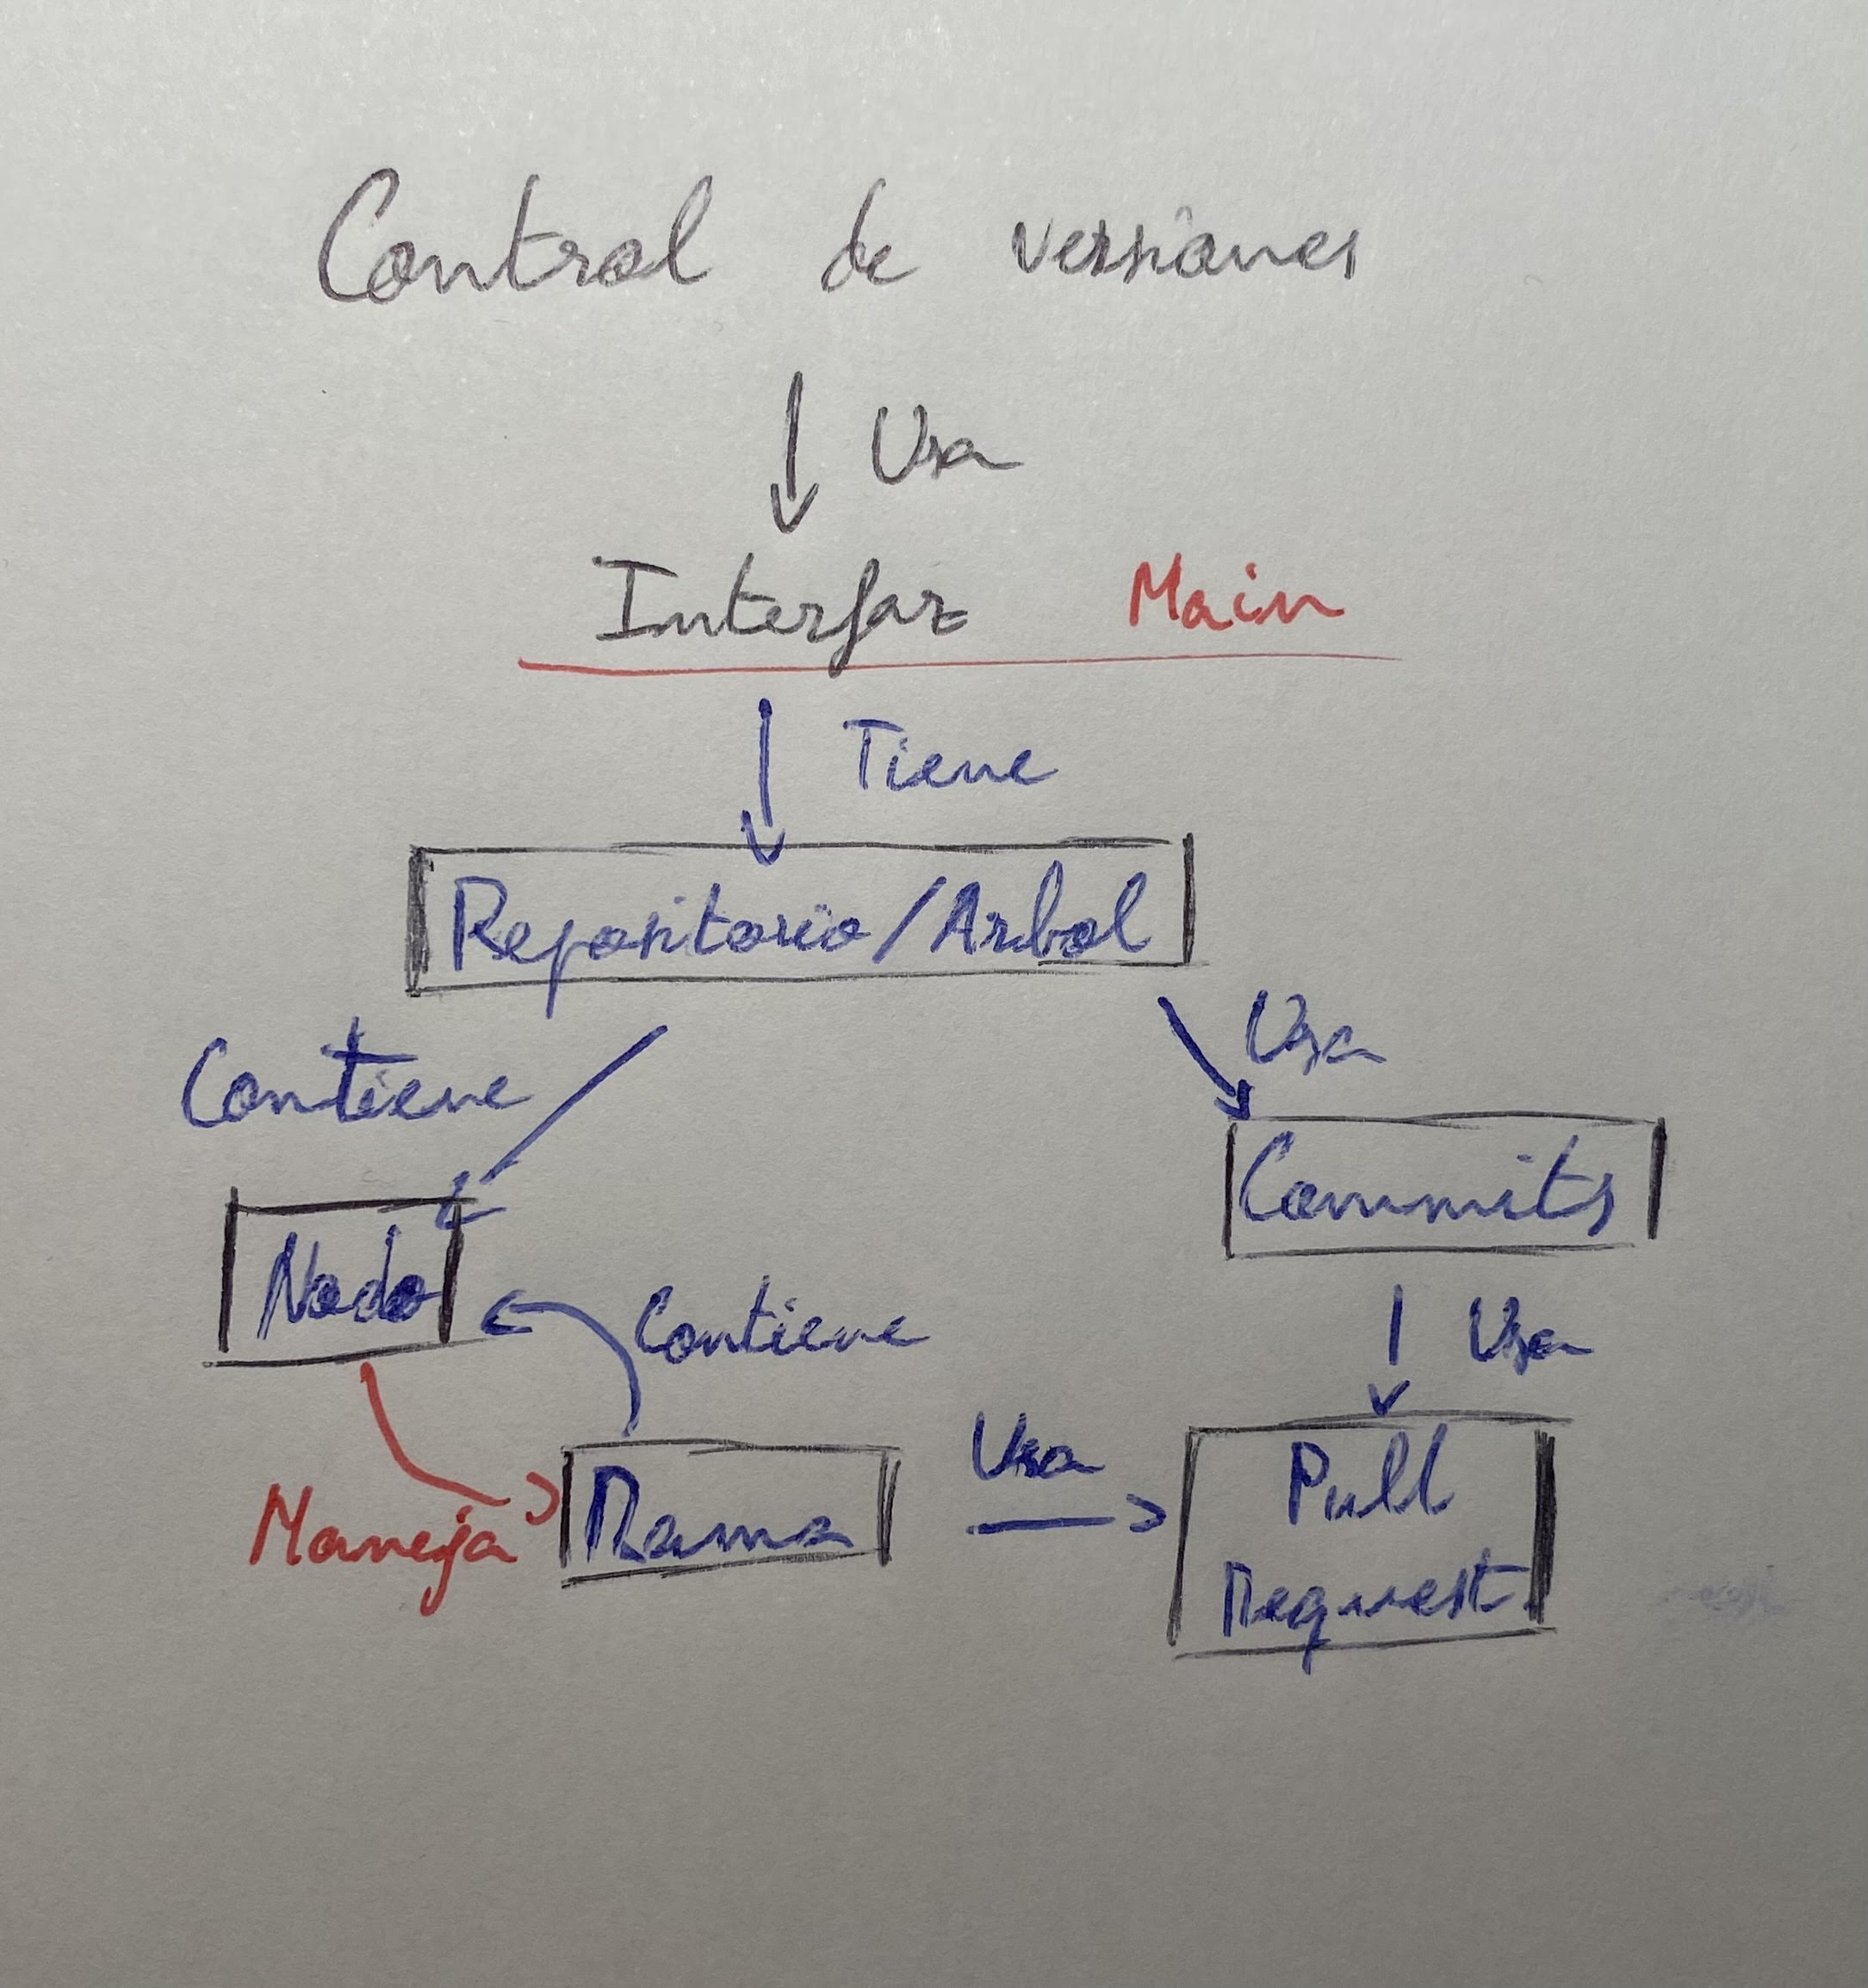 Control de versiones
Usa
Interfaz Main
Tiene
Repositorio/Arbol
Contiene
Usa
Commits
Nodo
Contiene
Usa
Maneja
Rama
Usa
Pull
Request